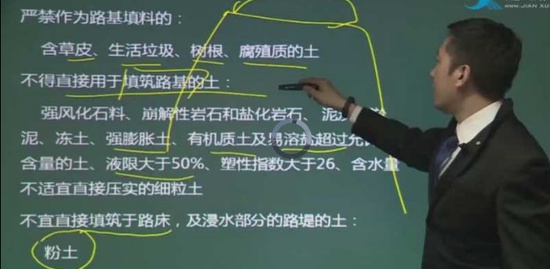 严禁作为路基填料的：
含草皮、生活垃圾、树根、腐殖质的土
不得直接用于填筑路基的土：
强风化石料、崩解性岩石和盐化岩石、泥
泥、冻土、强膨胀土、有机质土及易溶盐超过允
含量的土、液限大于50%、塑性指数大于26、含水量
不适宜直接压实的细粒土
不宜直接填筑于路床，及浸水部分的路堤的土：
粉土